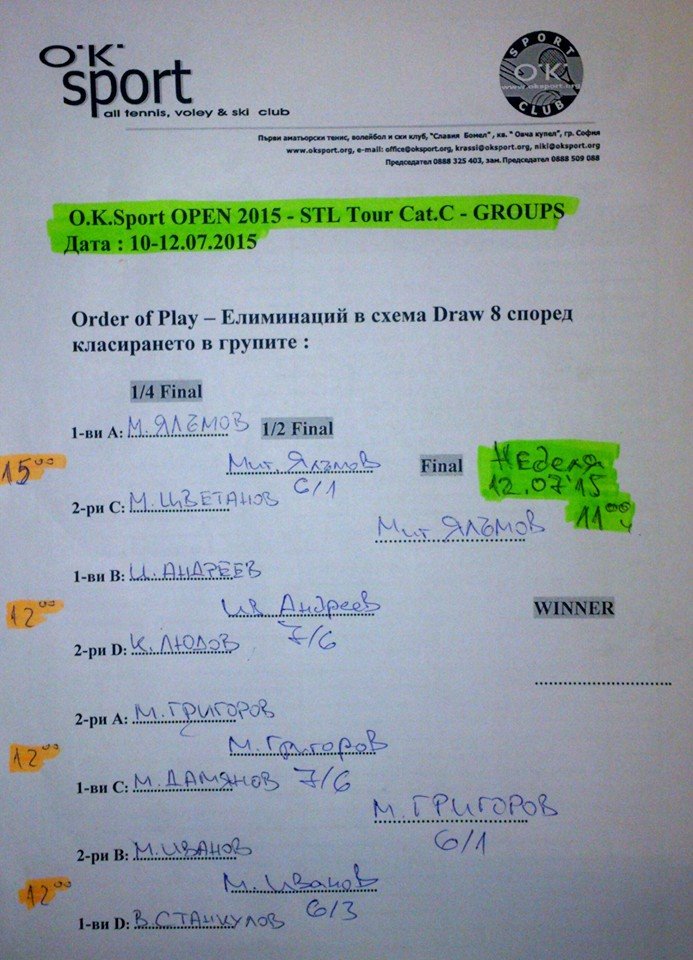 O.K. sport
all tennis, voley & ski club
SPORT
O.K.
www.oksport.org
CLUB
Първи аматьорски тенис, волейбол и ски клуб, "Славия Бомел", кв. " Овча купел", гр. София
www.oksport.org, e-mail: office@oksport.org, krassi@oksport.org, niki@oksport.org
Председател 0888 325 403, зам. Председател 0888 509 088
O.K.Sport OPEN 2015 - STL Tour Cat.C - GROUPS
Дата : 10-12.07.2015
Order of Play – Елиминаций в схема Draw 8 според
класирането в групите :
1/4 Final
1-ви A: М. ЯЛЪМОВ
1/2 Final
15⁰⁰
Мит. Ялъмов
6/1
Final
Неделя
12.07'15
11⁰⁰ ч
2-ри C: М. ЦВЕТАНОВ
Мит ЯЛЪМОВ
1-ви B: И. АНДРЕЕВ
12⁰⁰
Ив. Андреев
7/6
WINNER
2-ри D: К. ЛЮДОВ
2-ри A: М. ГРИГОРОВ
12⁰⁰
М. Григоров
1-ви C: М. ДАМЯНОВ
7/6
М. ГРИГОРОВ
6/1
2-ри B: М. ИВАНОВ
12⁰⁰
М. Иванов
6/3
1-ви D: В. СТАНКУЛОВ